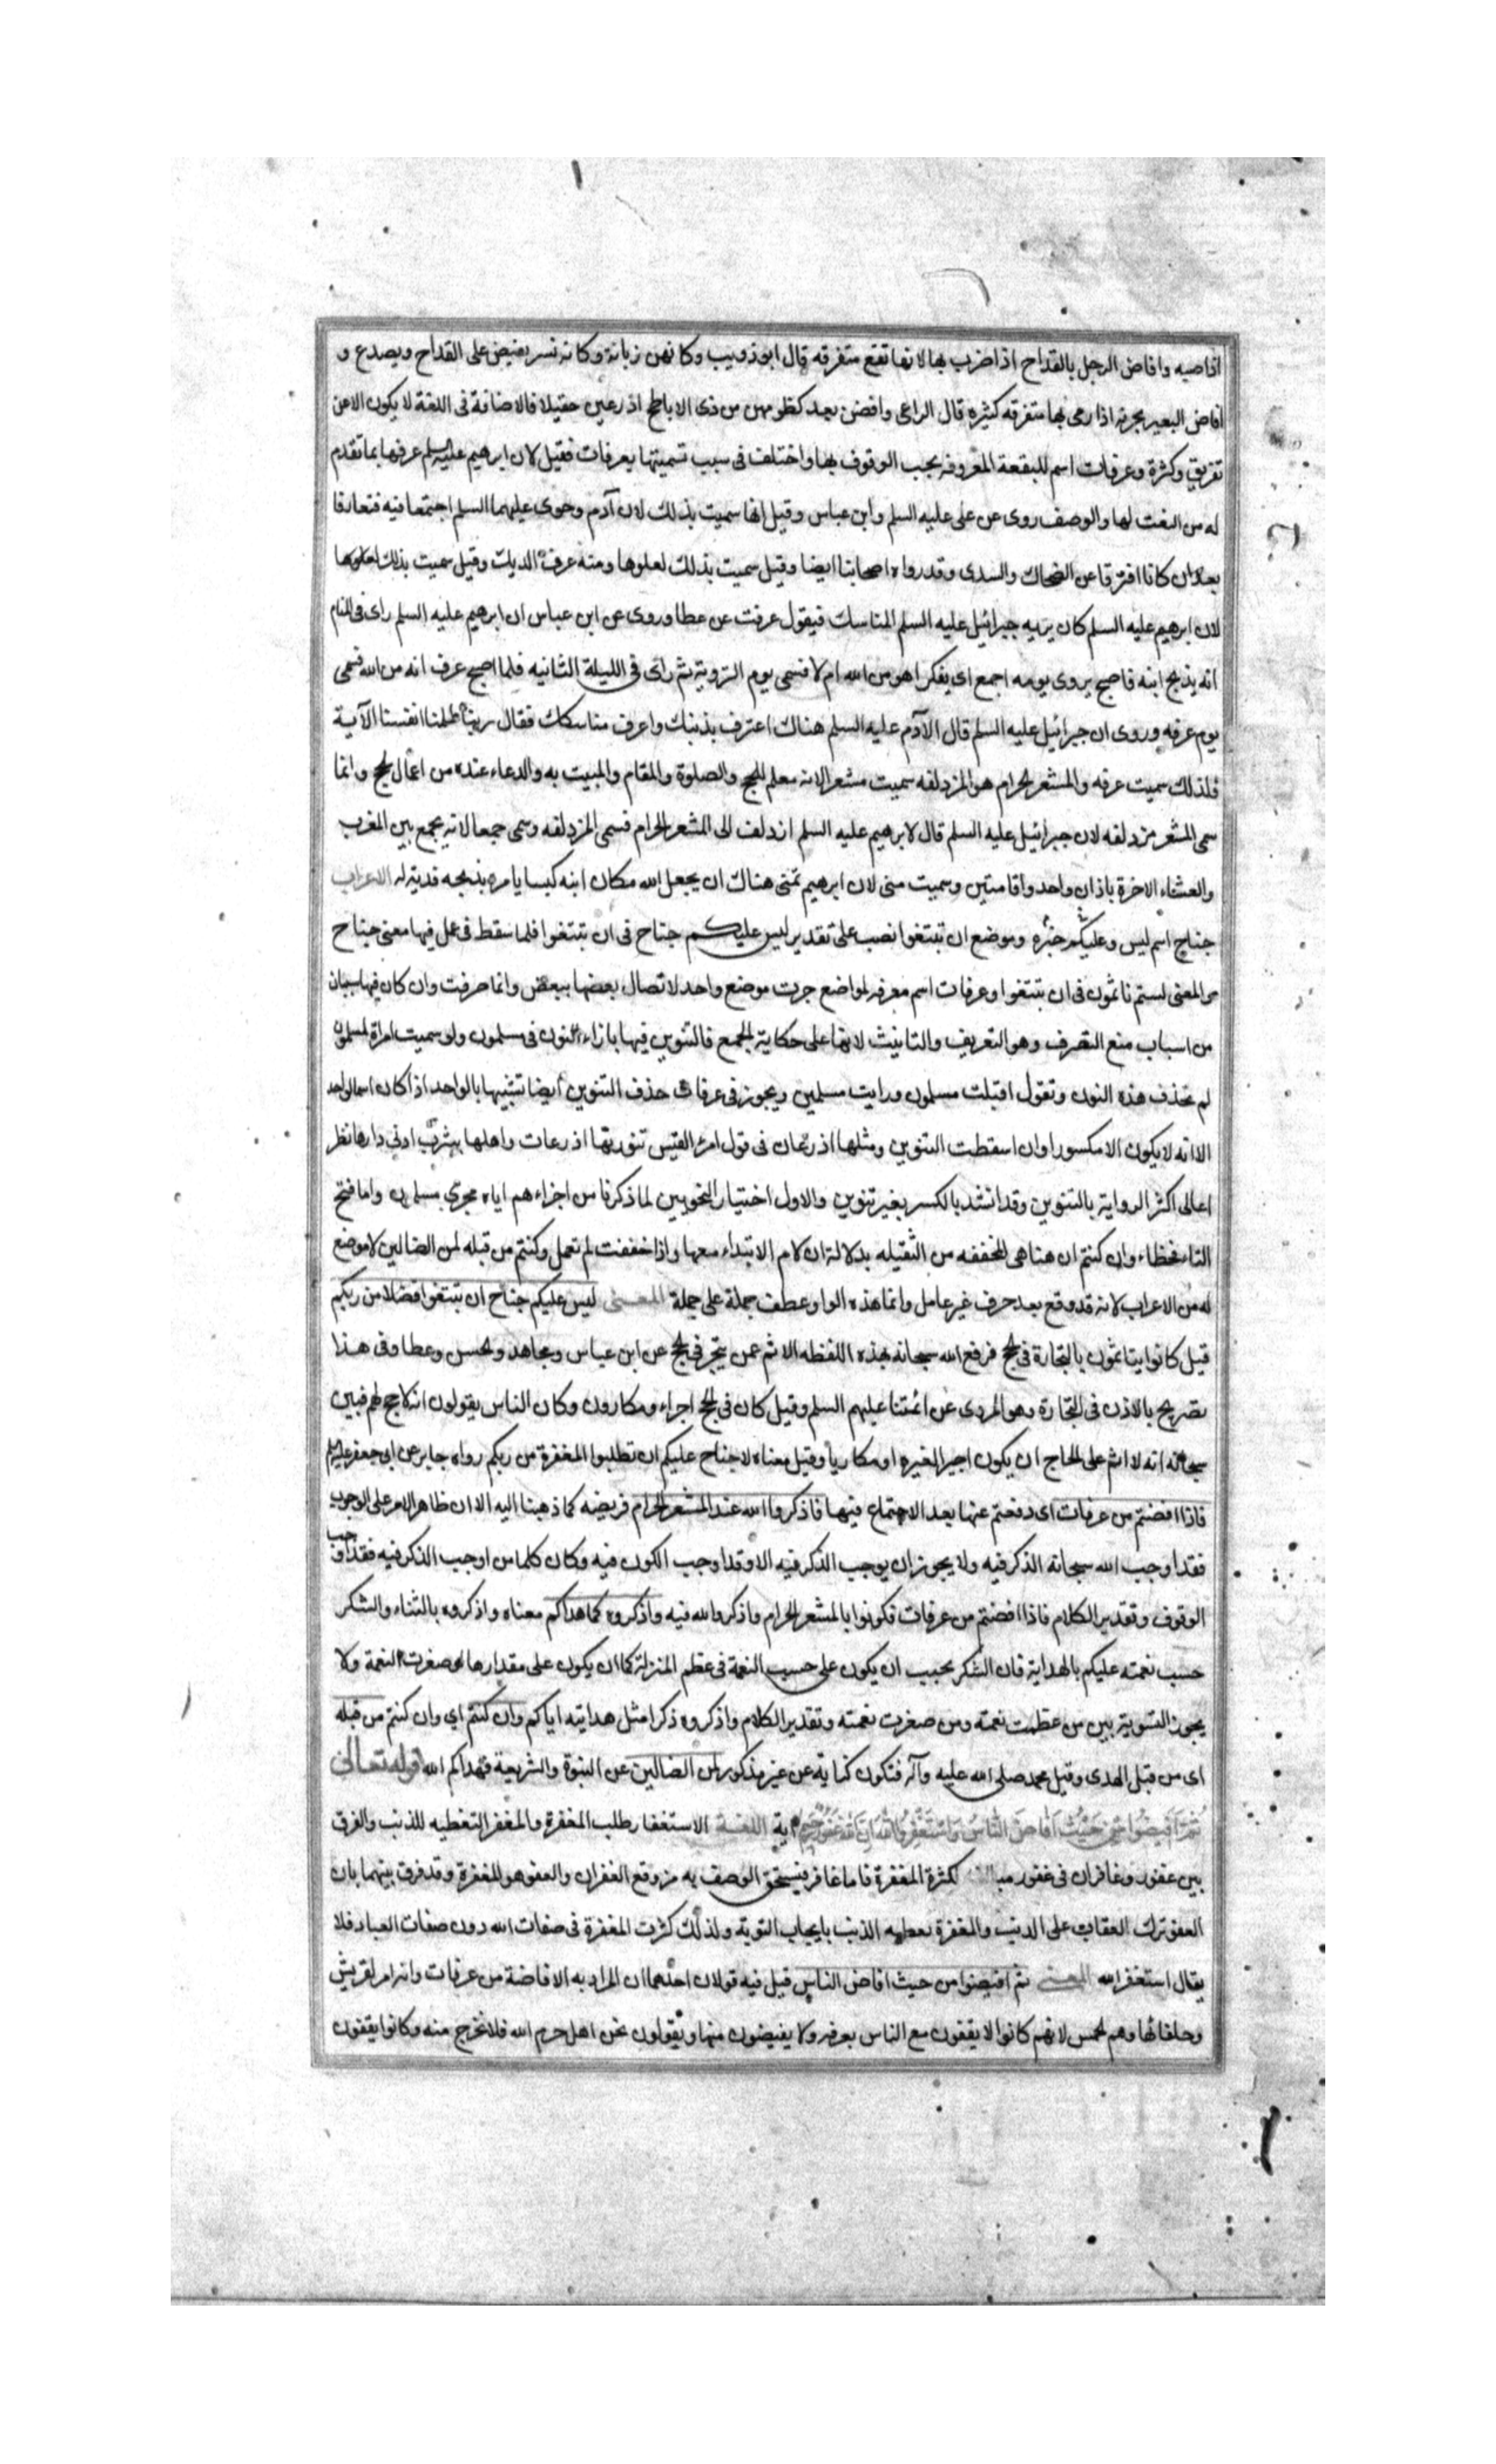 افاصيه وافاض الرجل بالقداح اذا ضرب بها لانها تقع متفرقه قال ابوذويب وكانهن ربابة وكانه يسر يفيض على القداح ويصدع و
افاض البعير بجرته اذا رمى بها متفرقه كثيره قال الراعي وافضن بعد كظومهن من ذى الاباطح اذ رعين حقيلا فالافاضة فى اللغة لا يكون الا من
تفريق وكثرة وعرفات اسم للبقعة المعروفه يجب الوقوف بها واختلف فى سبب تسميتها بعرفات فقيل لان ابرهيم عليه السلم عرفها بما تقدم
له من النعت لها والوصف روى عن على عليه السلم وابن عباس وقيل انها سميت بذلك لان آدم وحوى عليهما السلم اجتمعا فيه فتعارفا
بعد ان كانا افترقا عن الضحاك والسدى وقد رواه اصحابنا ايضا وقيل سميت بذلك لعلوها ومنه عرف الديك وقيل سميت بذلك
لان ابرهيم عليه السلم كان يريه جبرائيل عليه السلم المناسك فيقول عرفت عن عطا وروى عن ابن عباس ان ابرهيم عليه السلم راى فى المنام
انه يذبح ابنه فاصبح يروى يومه اجمع اى يفكر اهو من الله ام لا فسمى يوم التروية ثم راى فى الليلة الثانيه فلما اصبح عرف انه من الله فسمى
يوم عرفه وروى ان جبرائيل عليه السلم قال لآدم عليه السلم هناك اعترف بذنبك واعرف مناسكك فقال ربنا ظلمنا انفسنا الآية
فلذلك سميت عرفه والمشعر الحرام هو المزدلفه سميت مشعرا لانه معلم للحج والصلوة والمقام والمبيت به والدعاء عنده من اعمال الحج وانما
سمى المشعر مزدلفه لان جبرائيل عليه السلم قال لابرهيم عليه السلم ازدلف الى المشعر الحرام فسمى المزدلفه وسمى جمعا لانه يجمع بين المغرب
والعشاء الاخرة باذان واحد واقامتين وسميت منى لان ابرهيم تمنى هناك ان يجعل الله مكان ابنه كبشا يامره بذبحه فدية له الاعراب
جناح اسم ليس وعليكم خبره وموضع ان تبتغوا نصب على تقدير ليس عليكم جناح فى ان تبتغوا فلما سقط فى عمل فيها معنى جناح
والمعنى لستم تاثمون فى ان تبتغوا وعرفات اسم معرفه لمواضع جرت موضع واحد لاتصال بعضها ببعض وانما صرفت وان كان فيها سببان
من اسباب منع الصرف وهو التعريف والتانيث لانها على حكاية الجمع فالتنوين فيها بازاء النون فى مسلمون ولو سميت امراة بمسلمون
لم تحذف هذه النون وتقول اقبلت مسلمون ورايت مسلمين ويجوز فى عرفات حذف التنوين ايضا تشبيها بالواحد اذا كان اسما لواحد
الا انه لا يكون الا مكسورا وان اسقطت التنوين ومثلها اذرعات فى قول امرء القيس تنورتها اذرعات واهلها بيثرب ادنى دارها نظر
اعالى اكثر الرواية بالتنوين وقد انشد بالكسر بغير تنوين والاول اختيار النحويين لما ذكرنا من اجراءهم اياه مجرى مسلمون واما فتح
التاء فخطاء وان كنتم ان هنا هى المخففه من الثقيله بدلالة ان لام الابتداء معها واذا خففت لم تعمل وكنتم من قبله لمن الضالين لا موضع
له من الاعراب لانه قد وقع بعد حرف غير عامل وانما هذه الواو عطف جملة على جملة المعنى ليس عليكم جناح ان تبتغوا فضلا من ربكم
قيل كانوا يتاثمون بالتجارة فى الحج فرفع الله سبحانه بهذه اللفظه الاثم عمن يتجر فى الحج عن ابن عباس ومجاهد والحسن وعطا وفى هذا
تصريح بالاذن فى التجارة وهو المروى عن ائمتنا عليهم السلم وقيل كان فى الحج اجراء ومكارون وكان الناس يقولون انه لا حج لهم فبين
سبحانه انه لا اثم على الحاج ان يكون اجيرا لغيره او مكاريا وقيل معناه لا جناح عليكم ان تطلبوا المغفرة من ربكم رواه جابر عن ابى جعفر عليه السلم
فاذا افضتم من عرفات اى دفعتم عنها بعد الاجتماع فيها فاذكروا الله عند المشعر الحرام فريضه كما ذهبنا اليه الا ان ظاهر الامر على الوجوب
فقد اوجب الله سبحانه الذكر فيه ولا يجوز ان يوجب الذكر فيه الا وقد اوجب الكون فيه وكان كلما من اوجب الذكر فيه فقد اوجب
الوقوف وتقدير الكلام فاذا افضتم من عرفات فكونوا بالمشعر الحرام واذكروا الله فيه واذكروه كما هداكم معناه واذكروه بالثناء والشكر
حسب نعمته عليكم بالهداية فان الشكر يجب ان يكون على حسب النعمة فى عظم المنزلة كما ان يكون على مقدارها لو صغرت النعمة ولا
يجوز التسوية بين من عظمت نعمته ومن صغرت نعمته وتقدير الكلام واذكروه ذكرا مثل هدايته اياكم وان كنتم اي وان كنتم من قبله
اى من قبل الهدى وقيل محمد صلى الله عليه وآله فتكون كناية عن غير مذكور لمن الضالين عن النبوة والشريعة فهداكم الله قوله تعالى
ثُمَّ اَفِيضُوا مِنْ حَيْثُ اَفَاضَ النَّاسُ وَاسْتَغْفِرُوا اللّٰهَ اِنَّ اللّٰهَ غَفُورٌ رَحِيمٌ اية اللغـة الاستغفار طلب المغفرة والمغفر التغطيه للذنب والفرق
بين غفور وغافر ان فى غفور مبالغة لكثرة المغفرة فاما غافر فيستحق الوصف به من وقع الغفران والعفو هو المغفرة وقد فرق بينهما بان
العفو ترك العقاب على الذنب والمغفرة تغطيه الذنب بايجاب التوبة ولذلك كثرت المغفرة فى صفات الله دون صفات العباد فلا
يقال استغفر الله المعنى ثم افيضوا من حيث افاض الناس قيل فيه قولان احدهما ان المراد به الافاضة من عرفات وانه امر لقريش
وحلفائها وهم الحمس لانهم كانوا لا يقفون مع الناس بعرفه ولا يفيضون منها ويقولون نحن اهل حرم الله فلا نخرج منه وكانوا يقفون